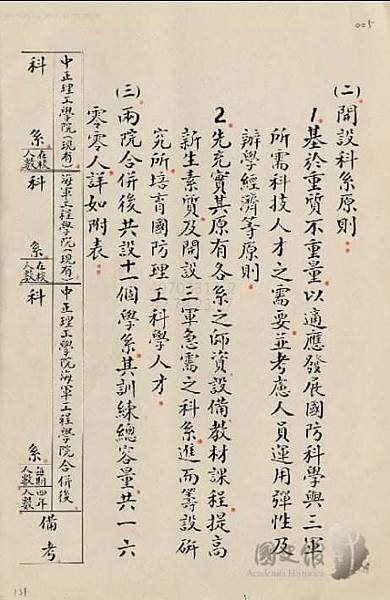 005
(二)開設科系原則：
1.基於重質不重量以適應發展國防科學與三軍
所需科技人才之需要並考慮人員運用彈性及
辦學經濟等原則
2.先充實其原有各系之師資設備教材課程提高
新生素質及開設三軍急需之科系進而籌設研
究所培育國防理工科學人才.
(三)兩院合併後共設十一個學系其訓練總容量共一六
零零人詳如附表：
中正理工學院(現有)
海軍工程學院(現有)
中正理工學院海軍工程學院合併後
備考
科系
在校人數
科系
在校人數
科系
每期人數
四年人數
國史館
Academia Historica
131